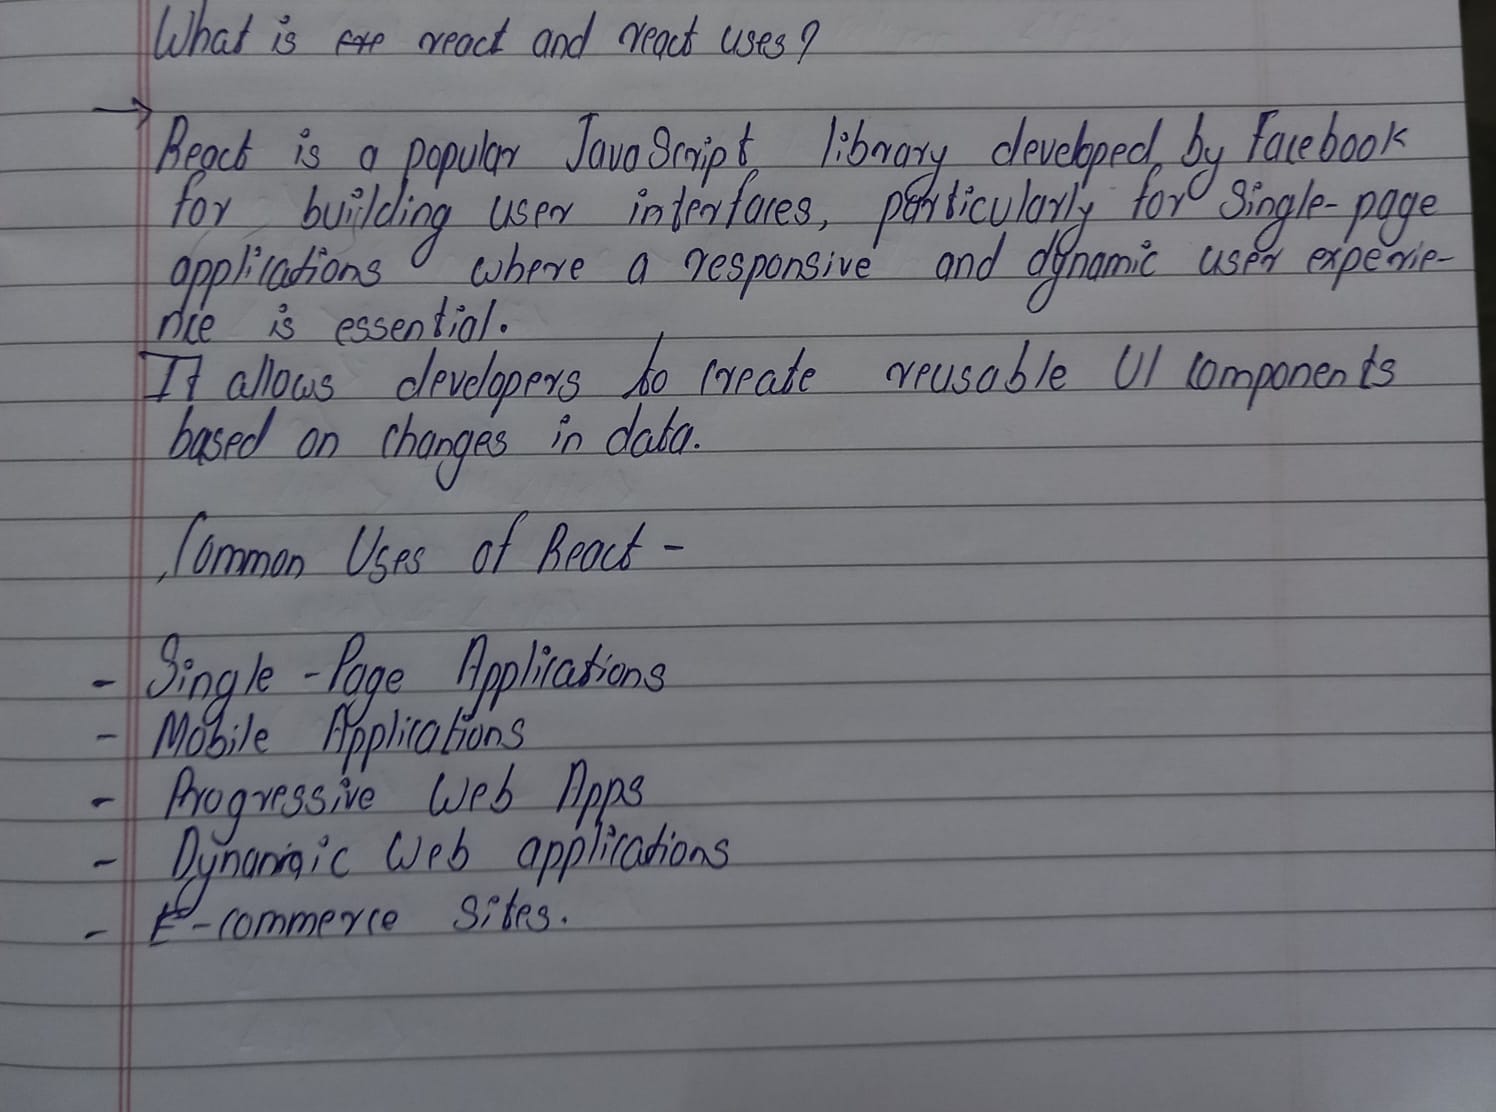 What is react and react uses?
→
React is a popular JavaScript library developed by Facebook
for building user interfaces, particularly for Single-page
applications where a responsive and dynamic user experie-
nce is essential.
It allows developers to create reusable UI components
based on changes in data.
Common Uses of React -
- Single-Page Applications
- Mobile Applications
- Progressive Web Apps
- Dynamic Web applications
- E-commerce Sites.